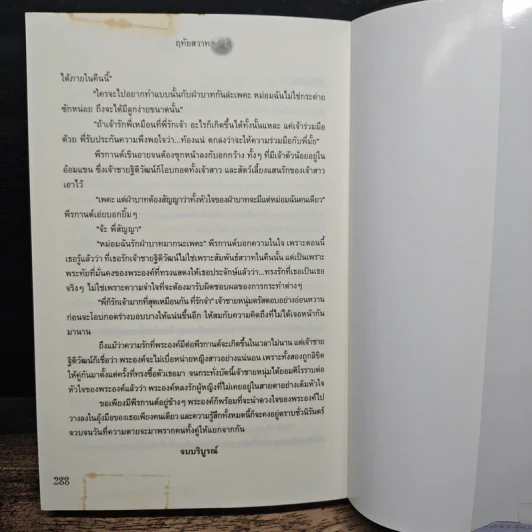 ฤทัยสวาท
ได้ภายในคืนนี้"
"ใครจะไปอยากทำแบบนั้นกับฝ่าบาทกันล่ะเพคะ หม่อมฉันไม่ใช่กระต่าย
ซักหน่อย ถึงจะได้มีลูกง่ายขนาดนั้น"
"ถ้าเจ้ารักพี่เหมือนที่พี่รักเจ้า อะไรก็เกิดขึ้นได้ทั้งนั้นแหละ แค่เจ้าร่วมมือ
ด้วย พี่รับประกันความพึงพอใจว่า...ท้องแน่ ตกลงว่าจะให้ความร่วมมือกับพี่มั้ย"
พีรกานต์เขินอายจนต้องซุกหน้าลงกับอกกว้าง ทั้งๆ ที่มีเจ้าตัวน้อยอยู่ใน
อ้อมแขน ซึ่งเจ้าชายฐิติวัฒน์ก็โอบกอดทั้งเจ้าสาว และสัตว์เลี้ยงแสนรักของเจ้าสาว
เอาไว้
"เพคะ แต่ฝ่าบาทต้องสัญญาว่าทั้งหัวใจของฝ่าบาทจะมีแต่หม่อมฉันคนเดียว"
พีรกานต์เอ่ยบอกยิ้มๆ
"จ้ะ พี่สัญญา"
"หม่อมฉันรักฝ่าบาทมากนะเพคะ" พีรกานต์บอกความในใจ เพราะตอนนี้
เธอรู้แล้วว่า ที่เธอรักเจ้าชายฐิติวัฒน์ไม่ใช่เพราะสัมพันธ์สวาทในคืนนั้น แต่เป็นเพราะ
พระทัยที่มั่นคงของพระองค์ที่ทรงแสดงให้เธอประจักษ์แล้วว่า...ทรงรักที่เธอเป็นเธอ
จริงๆ ไม่ใช่เพราะความจำใจที่จะต้องมารับผิดชอบผลของการกระทำต่างๆ
"พี่ก็รักเจ้ามากที่สุดเหมือนกัน ที่รักจ๋า" เจ้าชายหนุ่มตรัสตอบอย่างอ่อนหวาน
ก่อนจะโอบกอดร่างบอบบางให้แน่นขึ้นอีก ให้สมกับความคิดถึงที่ไม่ได้เจอหน้ากัน
มานาน
ถึงแม้ว่าความรักที่พระองค์มีต่อพีรกานต์จะเกิดขึ้นในเวลาไม่นาน แต่เจ้าชาย
ฐิติวัฒน์ก็เชื่อว่า พระองค์จะไม่เบื่อหน่ายหญิงสาวอย่างแน่นอน เพราะทั้งสองถูกลิขิต
ให้คู่กันมาตั้งแต่ครั้งที่ทรงซื้อตัวเธอมา จนกระทั่งบัดนี้เจ้าชายหนุ่มได้ยอมศิโรราบต่อ
หัวใจของพระองค์แล้วว่า พระองค์หลงรักผู้หญิงที่ไม่เคยอยู่ในสายตาอย่างเต็มหัวใจ
ขอเพียงมีพีรกานต์อยู่ข้างๆ พระองค์ก็พร้อมที่จะนำดวงใจของพระองค์ไป
วางลงในอุ้งมือของเธอเพียงคนเดียว และความรู้สึกทั้งหมดนี้ก็จะคงอยู่ตราบชั่วนิรันดร์
จวบจนวันที่ความตายจะมาพรากคนทั้งคู่ให้แยกจากกัน
จบบริบูรณ์
288